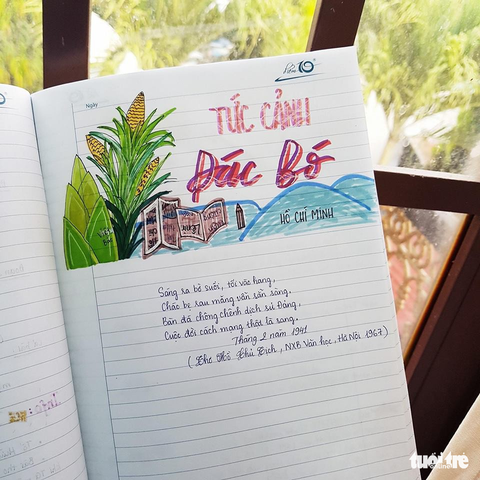 Ngày
TỨC CẢNH
Pác Bó
HỒ CHÍ MINH
Sáng ra bờ suối, tối vào hang,
Cháo bẹ rau măng vẫn sẵn sàng.
Bàn đá chông chênh dịch sử Đảng,
Cuộc đời cách mạng thật là sang.
Tháng 2 năm 1941
(Thơ Hồ Chủ Tịch, NXB Văn học, Hà Nội 1967)
tuổi trẻ